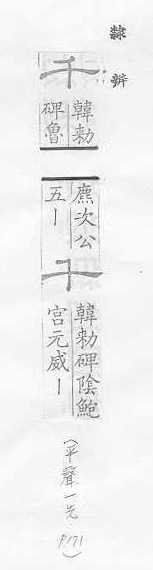 隸辨
千
韓勑
碑魯
麃次公
五｜
千
韓勑碑陰鮑
宮元威｜
(平聲一先 P171)